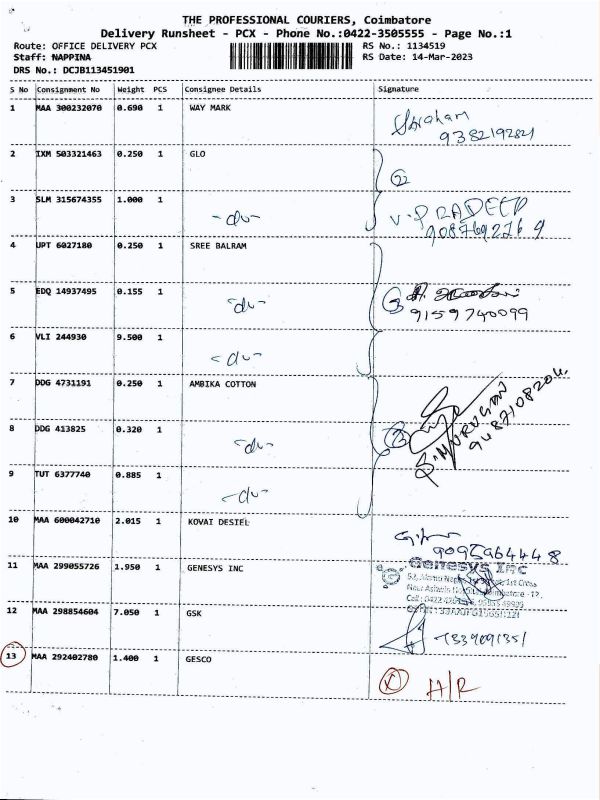 THE PROFESSIONAL COURIERS, Coimbatore
Delivery Runsheet - PCX - Phone No.:0422-3505555 - Page No.:1
Route: OFFICE DELIVERY PCX RS No.: 1134519
Staff: NAPPINA RS Date: 14-Mar-2023
DRS No.: DCJB113451901
S No Consignment No Weight PCS Consignee Details Signature
1 MAA 300232070 0.690 1 WAY MARK
9382192821
2 IXM 503321463 0.250 1 GLO
2
3 SLM 315674355 1.000 1 -do- V.PRADEEP
9087692769
4 UPT 6027180 0.250 1 SREE BALRAM
5 EDQ 14937495 0.155 1 -do- 3
9159740099
6 VLI 244930 9.500 1 -do-
7 DDG 4731191 0.250 1 AMBIKA COTTON
8 DDG 413825 0.320 1 -do- 3
S.MURUGAN
9487108204
9 TUT 6377740 0.885 1 -do-
10 MAA 600042710 2.015 1 KOVAI DESIEL
9095964448
11 MAA 299055726 1.950 1 GENESYS INC Genesys Inc
1st Cross
12 MAA 298854604 7.050 1 GSK
7339091351
13 MAA 292402780 1.400 1 GESCO
X H/R